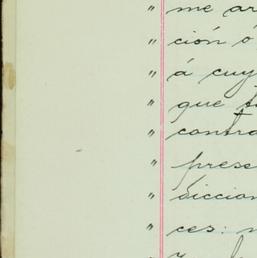 " me ar
" ción ó
" á cuy
" que
" contra
" press
" diccion
" ces:
"